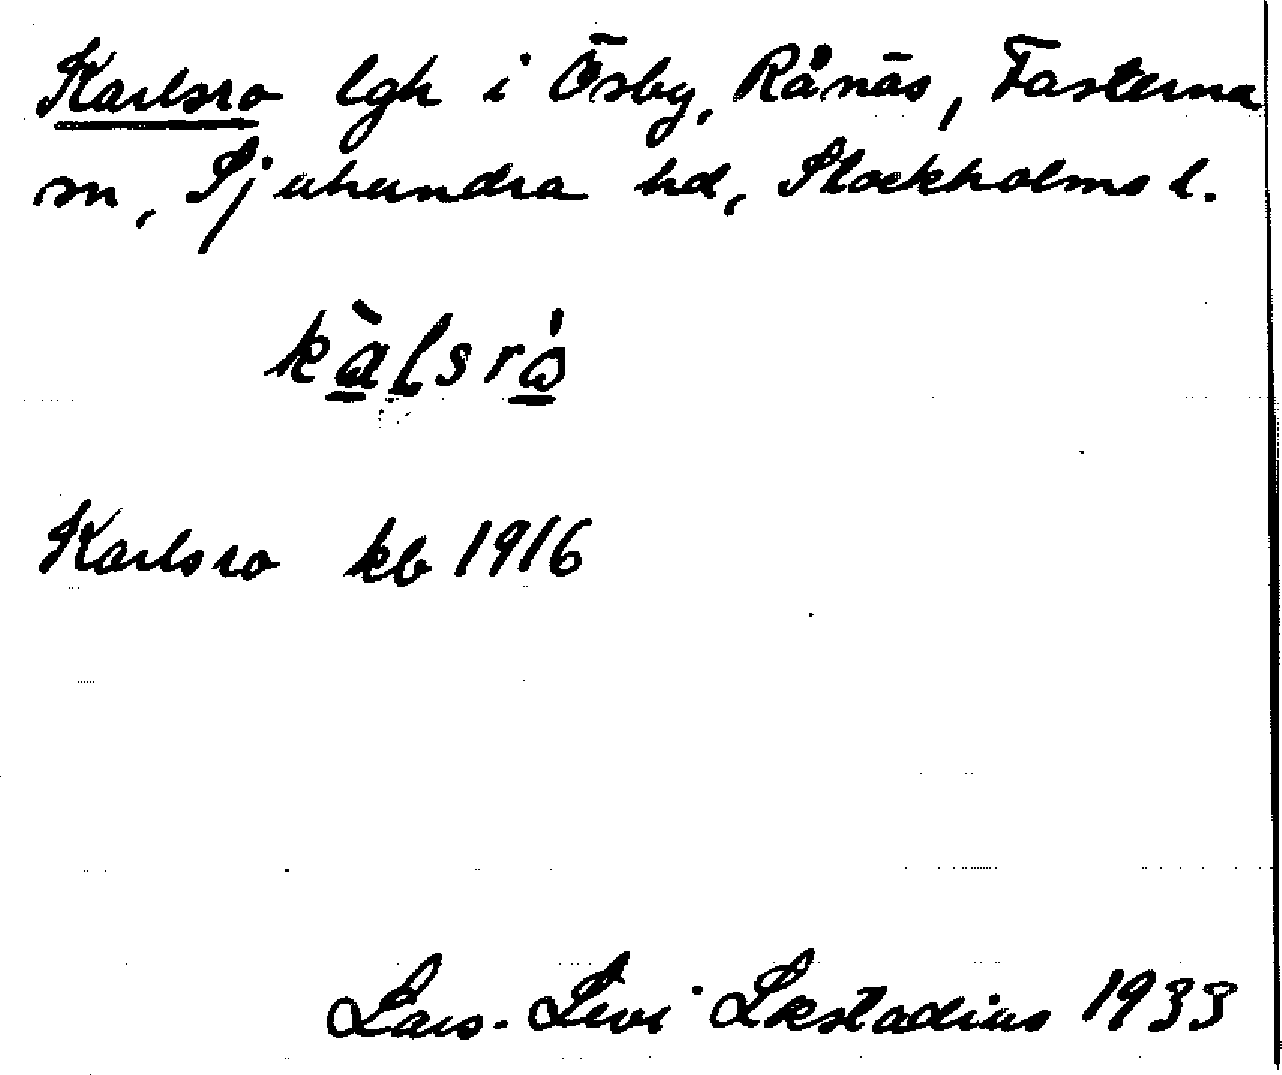 Karlsro lgh i Ösby, Rånäs, Fasterna
sn, Sjuhundra hd, Stockholms l.
kàlsró
Karlsro kb 1916
Lars-Levi Læstadius 1933